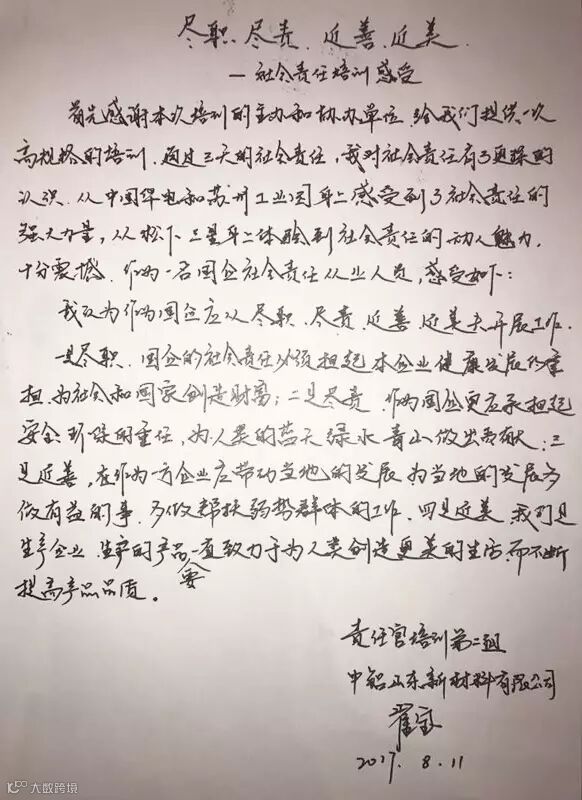 尽职、尽责、近善、近美
—社会责任培训感受
首先感谢本次培训的主办和协办单位,给我们提供一次
高规格的培训。通过三天的社会责任,我对社会责任有了更深的
认识,从中国华电和苏州工业园身上感受到了社会责任的
强大力量,从松下、三星身上体验到社会责任的动人魅力,
十分震撼。作为一名国企社会责任从业人员,感受如下:
我认为作为国企应从尽职、尽责、近善、近美去开展工作。
一是尽职,国企的社会责任必须担起本企业健康发展的重
担,为社会和国家创造财富;二是尽责,作为国企更应承担起
安全、环保的重任,为人类的蓝天绿水青山做出贡献;三
是近善,在作为一方企业应带动当地的发展,为当地的发展多
做有益的事,多做帮扶弱势群体的工作。四是近美,我们是
生产企业,生产的产品要一直致力于为人类创造更美的生活,而不断
提高产品品质。
责任官培训第二组
中铝山东新材料有限公司
2017.8.11
大数跨境